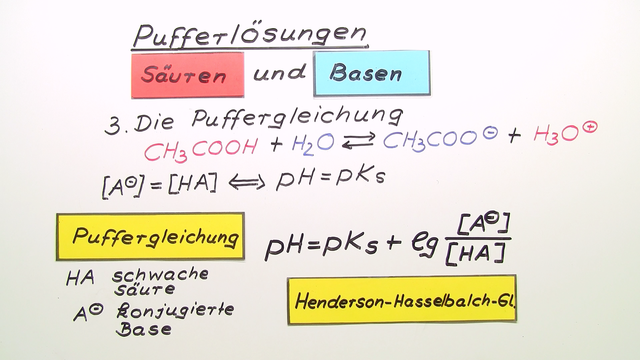 Pufferlösungen
Säuren und Basen
3. Die Puffergleichung
CH₃COOH + H₂O ⇌ CH₃COO⊖ + H₃O⊕
[A⊖] = [HA] ⟺ pH = pKs
Puffergleichung
pH = pKs + lg [A⊖]/[HA]
HA schwache
säure
A⊖ konjugierte
Base
Henderson-Hasselbalch-Gl.